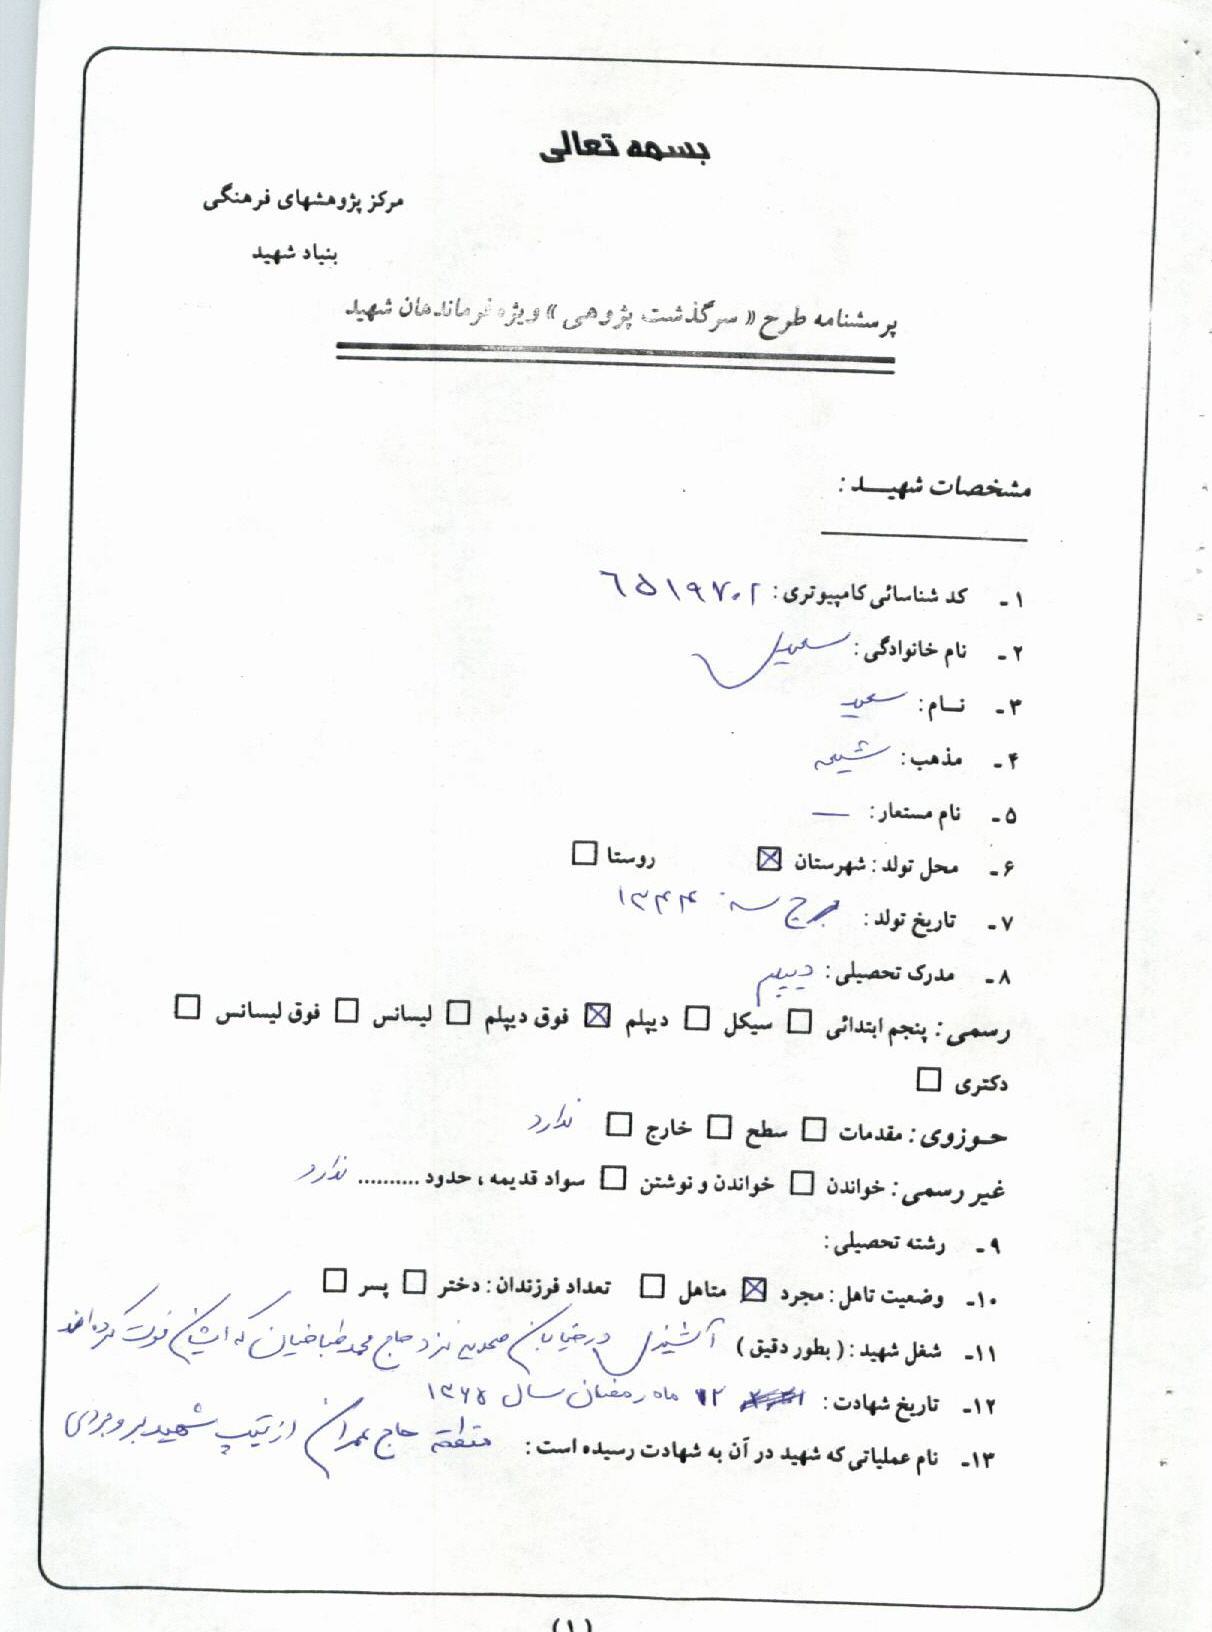 بسمه تعالی
مرکز پژوهشهای فرهنگی
بنیاد شهید
پرسشنامه طرح « سرگذشت پژوهی » ویژه فرماندهان شهید
مشخصات شهیــد :
۱ـ کد شناسائی کامپیوتری : ٦٥١٩٧٠٢
۲ـ نام خانوادگی :
۳ـ نــام : سعید
۴ـ مذهب : شیعه
۵ـ نام مستعار : —
۶ـ محل تولد : شهرستان ☒ روستا ☐
۷ـ تاریخ تولد : برج سه ۱۳۴۴
۸ـ مدرک تحصیلی : دیپلم
رسمی : پنجم ابتدائی ☐ سیکل ☐ دیپلم ☒ فوق دیپلم ☐ لیسانس ☐ فوق لیسانس ☐
دکتری ☐
حـوزوی : مقدمات ☐ سطح ☐ خارج ☐ ندارد
غیر رسمی : خواندن ☐ خواندن و نوشتن ☐ سواد قدیمه ، حدود .......... ندارد
۹ـ رشته تحصیلی :
۱۰ـ وضعیت تاهل : مجرد ☒ متاهل ☐ تعداد فرزندان : دختر ☐ پسر ☐
۱۱ـ شغل شهید : ( بطور دقیق ) آشپزی در خیابان صمدیه نزد حاج محمد طباخیان که ایشان فوت کرده‌اند
۱۲ـ تاریخ شهادت : ۱۲ ماه رمضان سال ۱۳۶۵
۱۳ـ نام عملیاتی که شهید در آن به شهادت رسیده است : منطقه حاج عمران از تیپ شهید بروجردی
(۱)